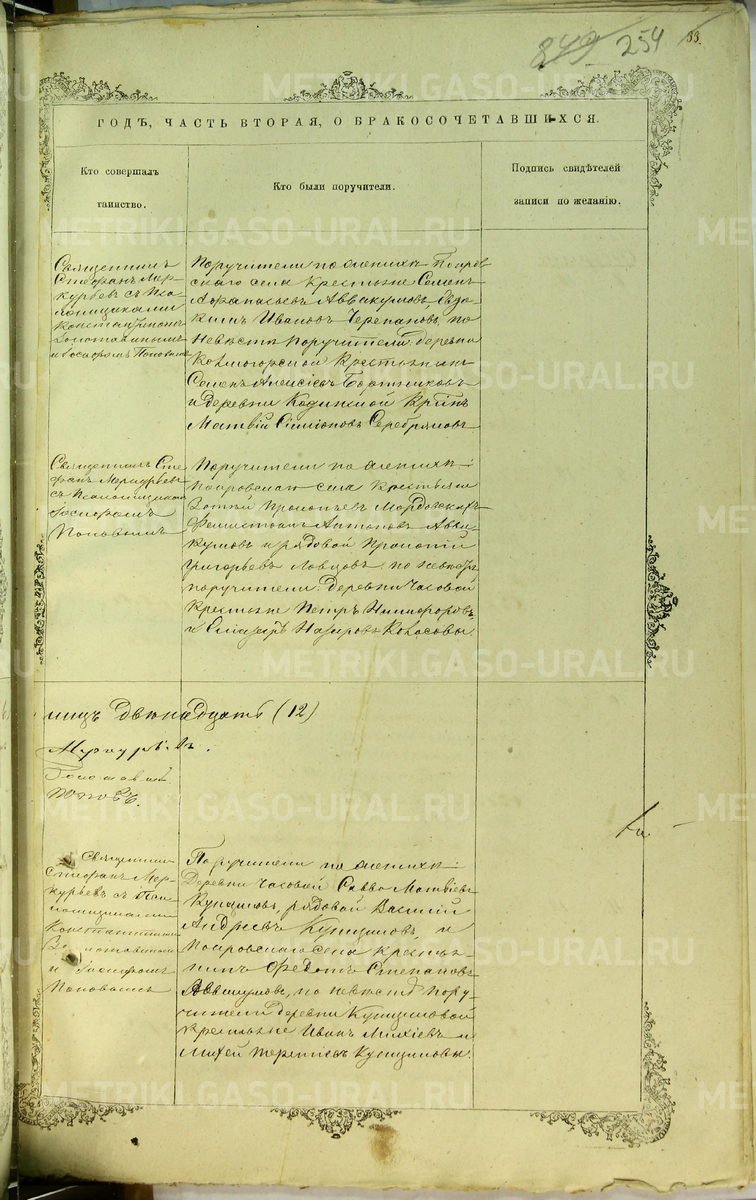 849 254 33.
ГОДЪ, ЧАСТЬ ВТОРАЯ, О БРАКОСОЧЕТАВШИХСЯ.
Кто совершалъ
таинство.
Кто были поручители.
Подпись свидѣтелей
записи по желанію.
Священникъ
Стефанъ Мер-
курьевъ съ Пса-
ломщиками
Константиномъ
и Іосифомъ Поповымъ
Поручители по женихѣ Покров
скаго села крестьяне Семенъ
Афанасьевъ Аввакумовъ, Евдо-
кимъ Ивановъ Черепановъ, по
невѣстѣ поручители: деревни
крестьянинъ
Семенъ Алексѣевъ
и деревни Кодинской
Матвій Симіоновъ Серебряковъ
Священникъ Сте-
фанъ Меркурьевъ
съ Псаломщикомъ
Іосифомъ
Поповымъ
Поручители по женихѣ:
Покровскаго села крестьяне
Прокопьевъ Мордовскихъ
Антоновъ Авва-
кумовъ и рядовой Прокопій
Григорьевъ Ловцовъ, по невѣстѣ
поручители: деревни Часовой
крестьяне Петръ Никифоровъ
и Елизаръ Назаровъ Колосовы
мицъ двѣнадцать (12)
Меркурьевъ.
Поповъ.
Священникъ
Стефанъ Мер-
курьевъ съ Пса-
ломщиками
Константиномъ
и Іосифомъ
Поповымъ
Поручители по женихѣ:
Деревни Часовой Савва Матвѣевъ
рядовой Василій
Андреевъ и
Покровскаго села крестья-
нинъ Федотъ Степановъ
Аввакумовъ, по невѣстѣ пору-
чители деревни
крестьяне Иванъ Михѣевъ и
Михей Терентьевъ
METRIKI.GASO-URAL.RU